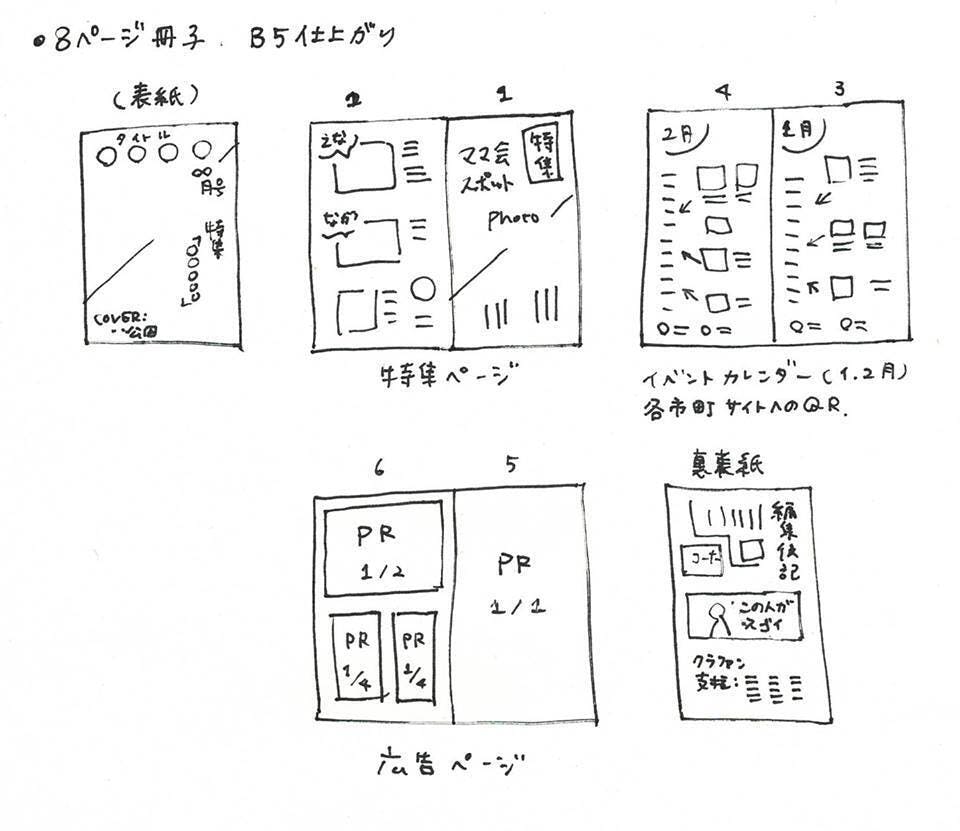 ・8ページ冊子. B5仕上がり
(表紙)
タイトル
〇〇〇〇
∞
月号
特集
「〇〇〇〇〇」
COVER:
〃公園
2
1
えな
なか
特集
ママ会
スポット
photo
特集ページ
4
3
2月
1月
イベントカレンダー(1.2月)
各市町サイトへのQR.
6
5
PR
1/2
PR
1/4
PR
1/4
PR
1/1
広告ページ
裏表紙
編集後記
コーナー
この人が
スゴイ
クラファン
支援: